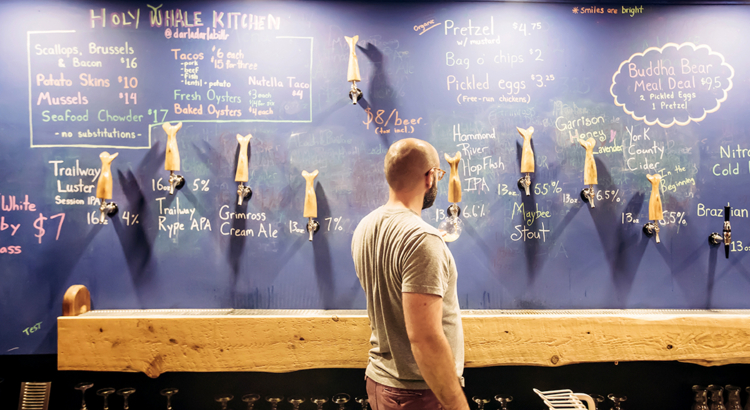 Holy Whale Kitchen
Scallops, Brussels
& Bacon $16
Potato Skins $10
Mussels $14
Seafood Chowder $17
- no substitutions -
Tacos $6 each
$15 for three
- pork
- beef
- fish
- lentil + potato
Nutella Taco
$4
Fresh Oysters
Baked Oysters $4 each
$8/beer
(tax incl.)
Organic
Pretzel $4.75
w/ mustard
Bag o' chips $2
Pickled eggs $3.25
(Free-run chickens)
*Smiles are bright
Buddha Bear
Meal Deal $9.5
2 Pickled Eggs
1 Pretzel
Trailway
Luster
Session IPA
16oz 4%
16oz 5%
Trailway
Rype APA
Grimross
Cream Ale
13oz 7%
Hammond
River
Hop Flash
IPA
13 6.6%
13oz 5.5%
Maybee
Stout
Garrison
Honey
Lavender
13oz 6.5%
York
County
Cider
In the
Beginning
13oz 6.5%
Nitro
Cold
Brazilian
13oz
White
by $7
ass
TEST